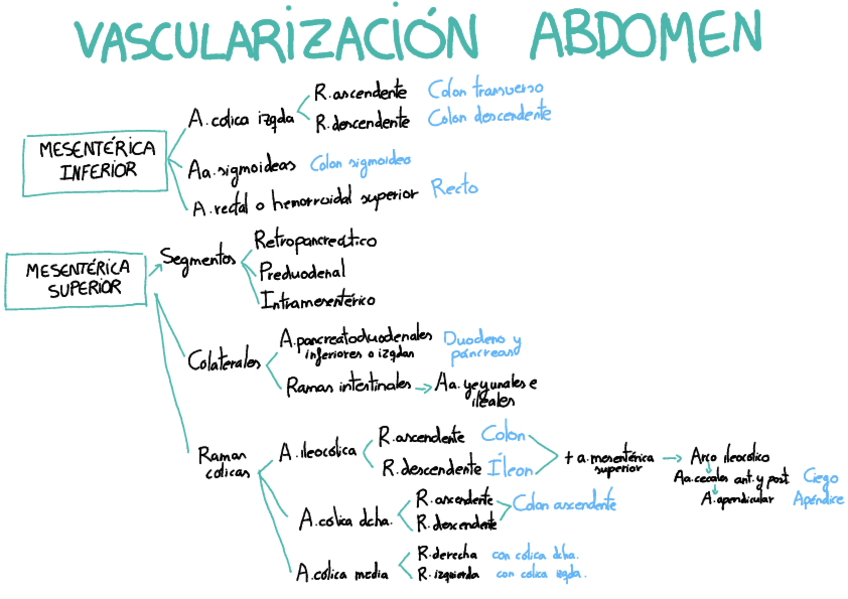 VASCULARIZACIÓN ABDOMEN
MESENTÉRICA
INFERIOR
A. cólica izqda
R. ascendente Colon transverso
R. descendente Colon descendente
Aa. sigmoideas Colon sigmoideo
A. rectal o hemorroidal superior Recto
MESENTÉRICA
SUPERIOR
Segmentos
Retropancreático
Preduodenal
Intramesentérico
Colaterales
A. pancreatoduodenales
inferiores o izqdas
Duodeno y
páncreas
Ramas intestinales → Aa. yeyunales e
ileales
Ramas
cólicas
A. ileocólica
R. ascendente Colon
R. descendente Íleon
+ a. mesentérica
superior
→ Arco ileocólico
Aa. cecales ant. y post Ciego
A. apendicular Apéndice
A. cólica dcha.
R. ascendente
R. descendente
Colon ascendente
A. cólica media
R. derecha con cólica dcha.
R. izquierda con cólica izqda.